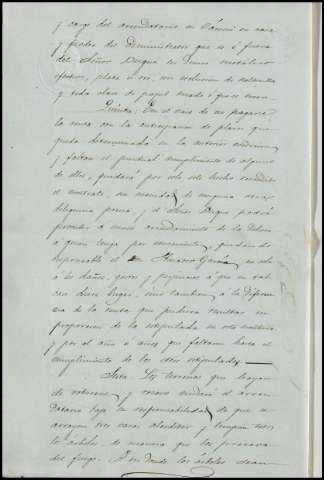 y cargo del arrendatario en Cáceres en casa
y poder del Administrador que es ó fuera
del Señor Duque en dinero metálico
efectivo, plata ú oro, con exclusion de calderilla
y toda clase de papel creado ó que se crease
Quinta: En el caso de no pagarse
la renta con la anticipacion de plazos que
queda determinada en la anterior condicion
y faltan el puntual cumplimiento de alguno
de ellos, quedará por solo este hecho rescindido
el contrato, sin necesidad de ninguna otra
diligencia previa, y el Señor Duque podrá
proceder á nuevo arrendamiento de la Dehesa
á quien tenga por conveniente, quedando
responsable el Dn Alvaro García, no solo
á los daños, gastos y perjuicios á que en tal
caso diere lugar, sino tambien á la diferen
cia de la renta que pudiera resultar en
proporcion de la estipulada en esta escritura
y por el año ó años que faltaren hasta el
cumplimiento de los otros estipulados.
Sesta. Los terrenos que hayan
de rozarse, y rocen cuidará el arren
datario bajo su responsabilidad de que se
arrojen tres varas alrededor y limpien todos
los árboles, de manera que los preserven
del fuego. Y en donde los árboles sean